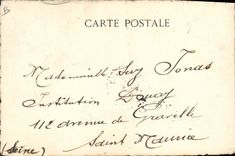 CARTE POSTALE
Mademoiselle Suzy Jonas
Institution Douay
112 avenue de Graville
Saint Maurice
(Seine)